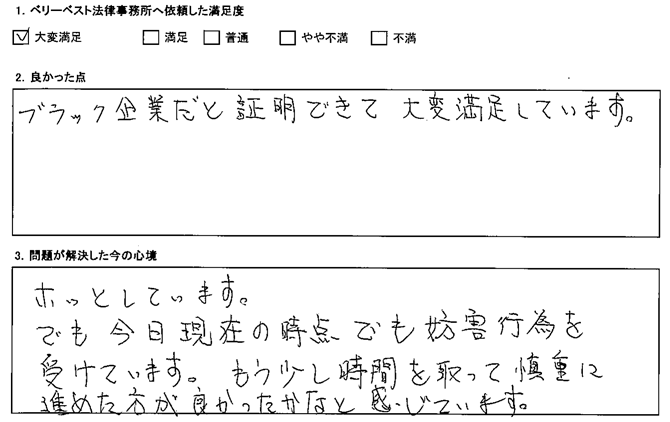 1. ベリーベスト法律事務所へ依頼した満足度
☑ 大変満足 □ 満足 □ 普通 □ やや不満 □ 不満
2. 良かった点
ブラック企業だと証明できて 大変満足しています。
3. 問題が解決した今の心境
ホッとしています。
でも今日現在の時点でも妨害行為を
受けています。もう少し時間を取って慎重に
進めた方が良かったかなと感じています。